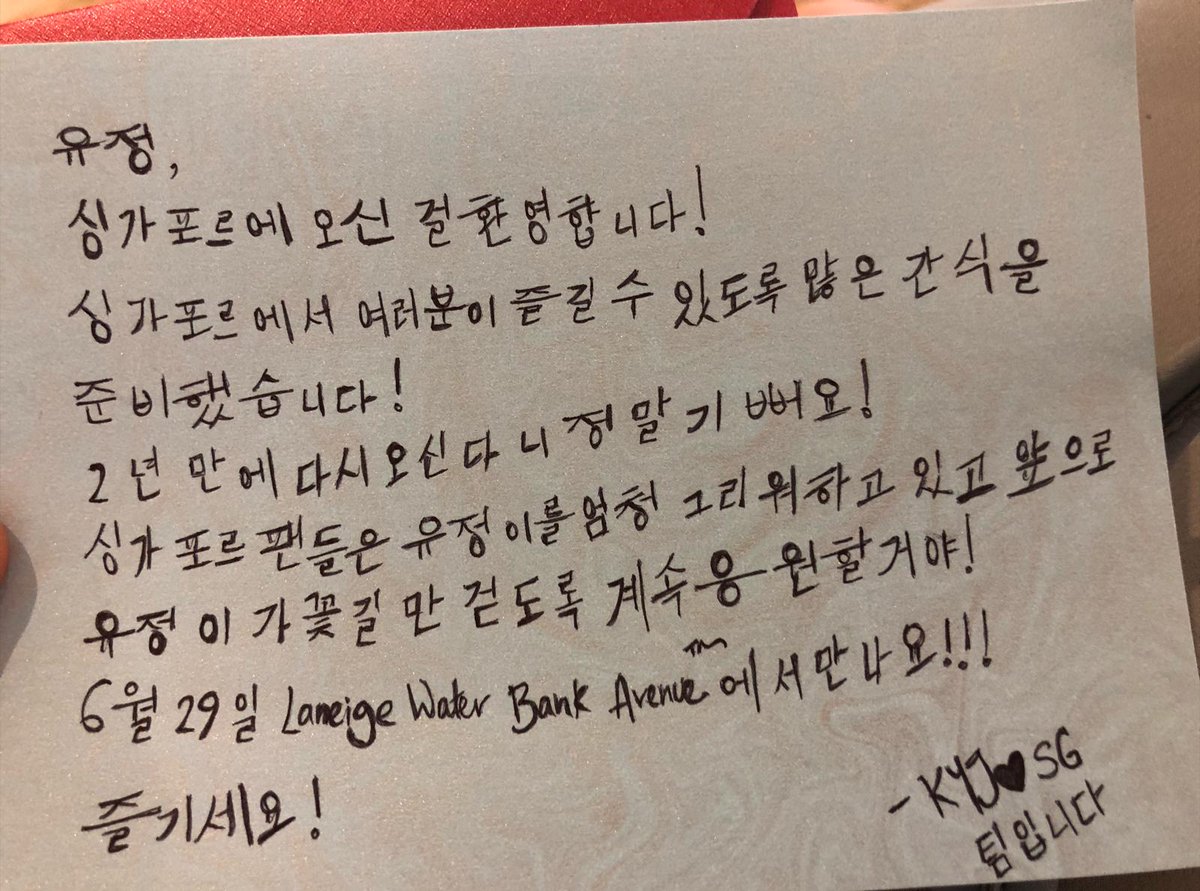 유정,
싱가포르에 오신 걸 환영합니다!
싱가포르에서 여러분이 즐길 수 있도록 많은 간식을
준비했습니다!
2년 만에 다시 오신다니 정말 기뻐요!
싱가포르 팬들은 유정이를 엄청 그리워하고 있고 앞으로
유정이가 꽃길만 걷도록 계속 응원할거야!
6월 29일 Laneige Water Bank Avenue™에서 만나요!!!
즐기세요!
- KYJ♥SG
팀입니다